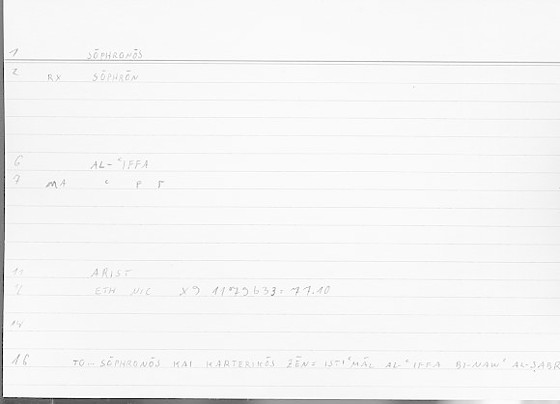 1 SŌPHRONŌS
2 RX SŌPHRŌN
6 AL-ʿIFFA
7 MA ʿ P F
11 ARIST
12 ETH NIC X9 1179b33= 77.10
14
16 TO-- SŌPHRONŌS KAI KARTERIKŌS ZĒN= ISTIʿMĀL AL-ʿIFFA BI-NAWʿ AL-ṢABR